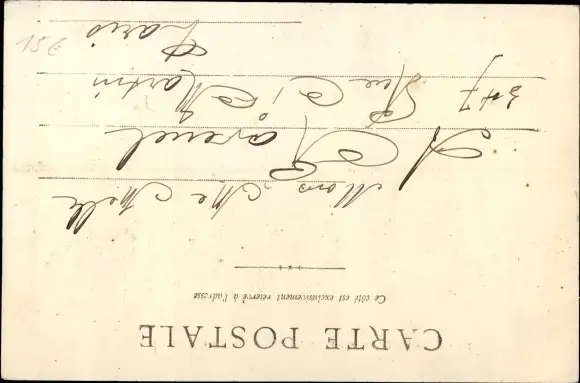 CARTE POSTALE
Ce côté est exclusivement réservé à l'adresse
Mons. Mme Melle
Ravenel
347 Rue St Martin
Paris